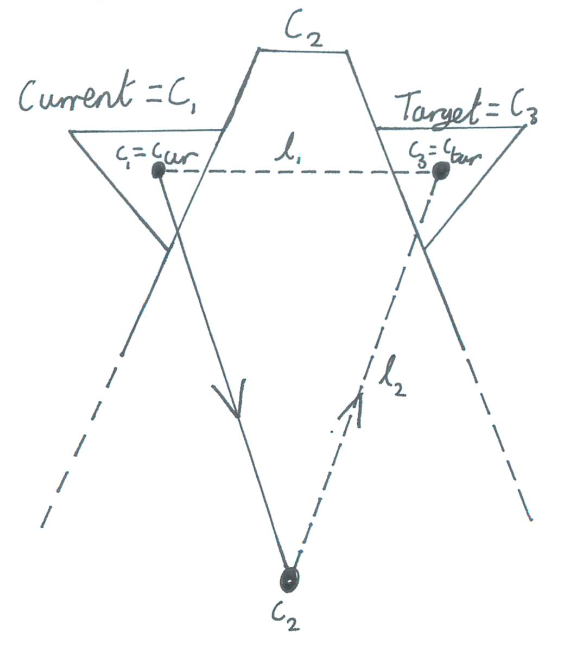 C₂
Current = C₁
Target = C₃
c₁ = c_cur
l₁
c₃ = c_tar
l₂
c₂